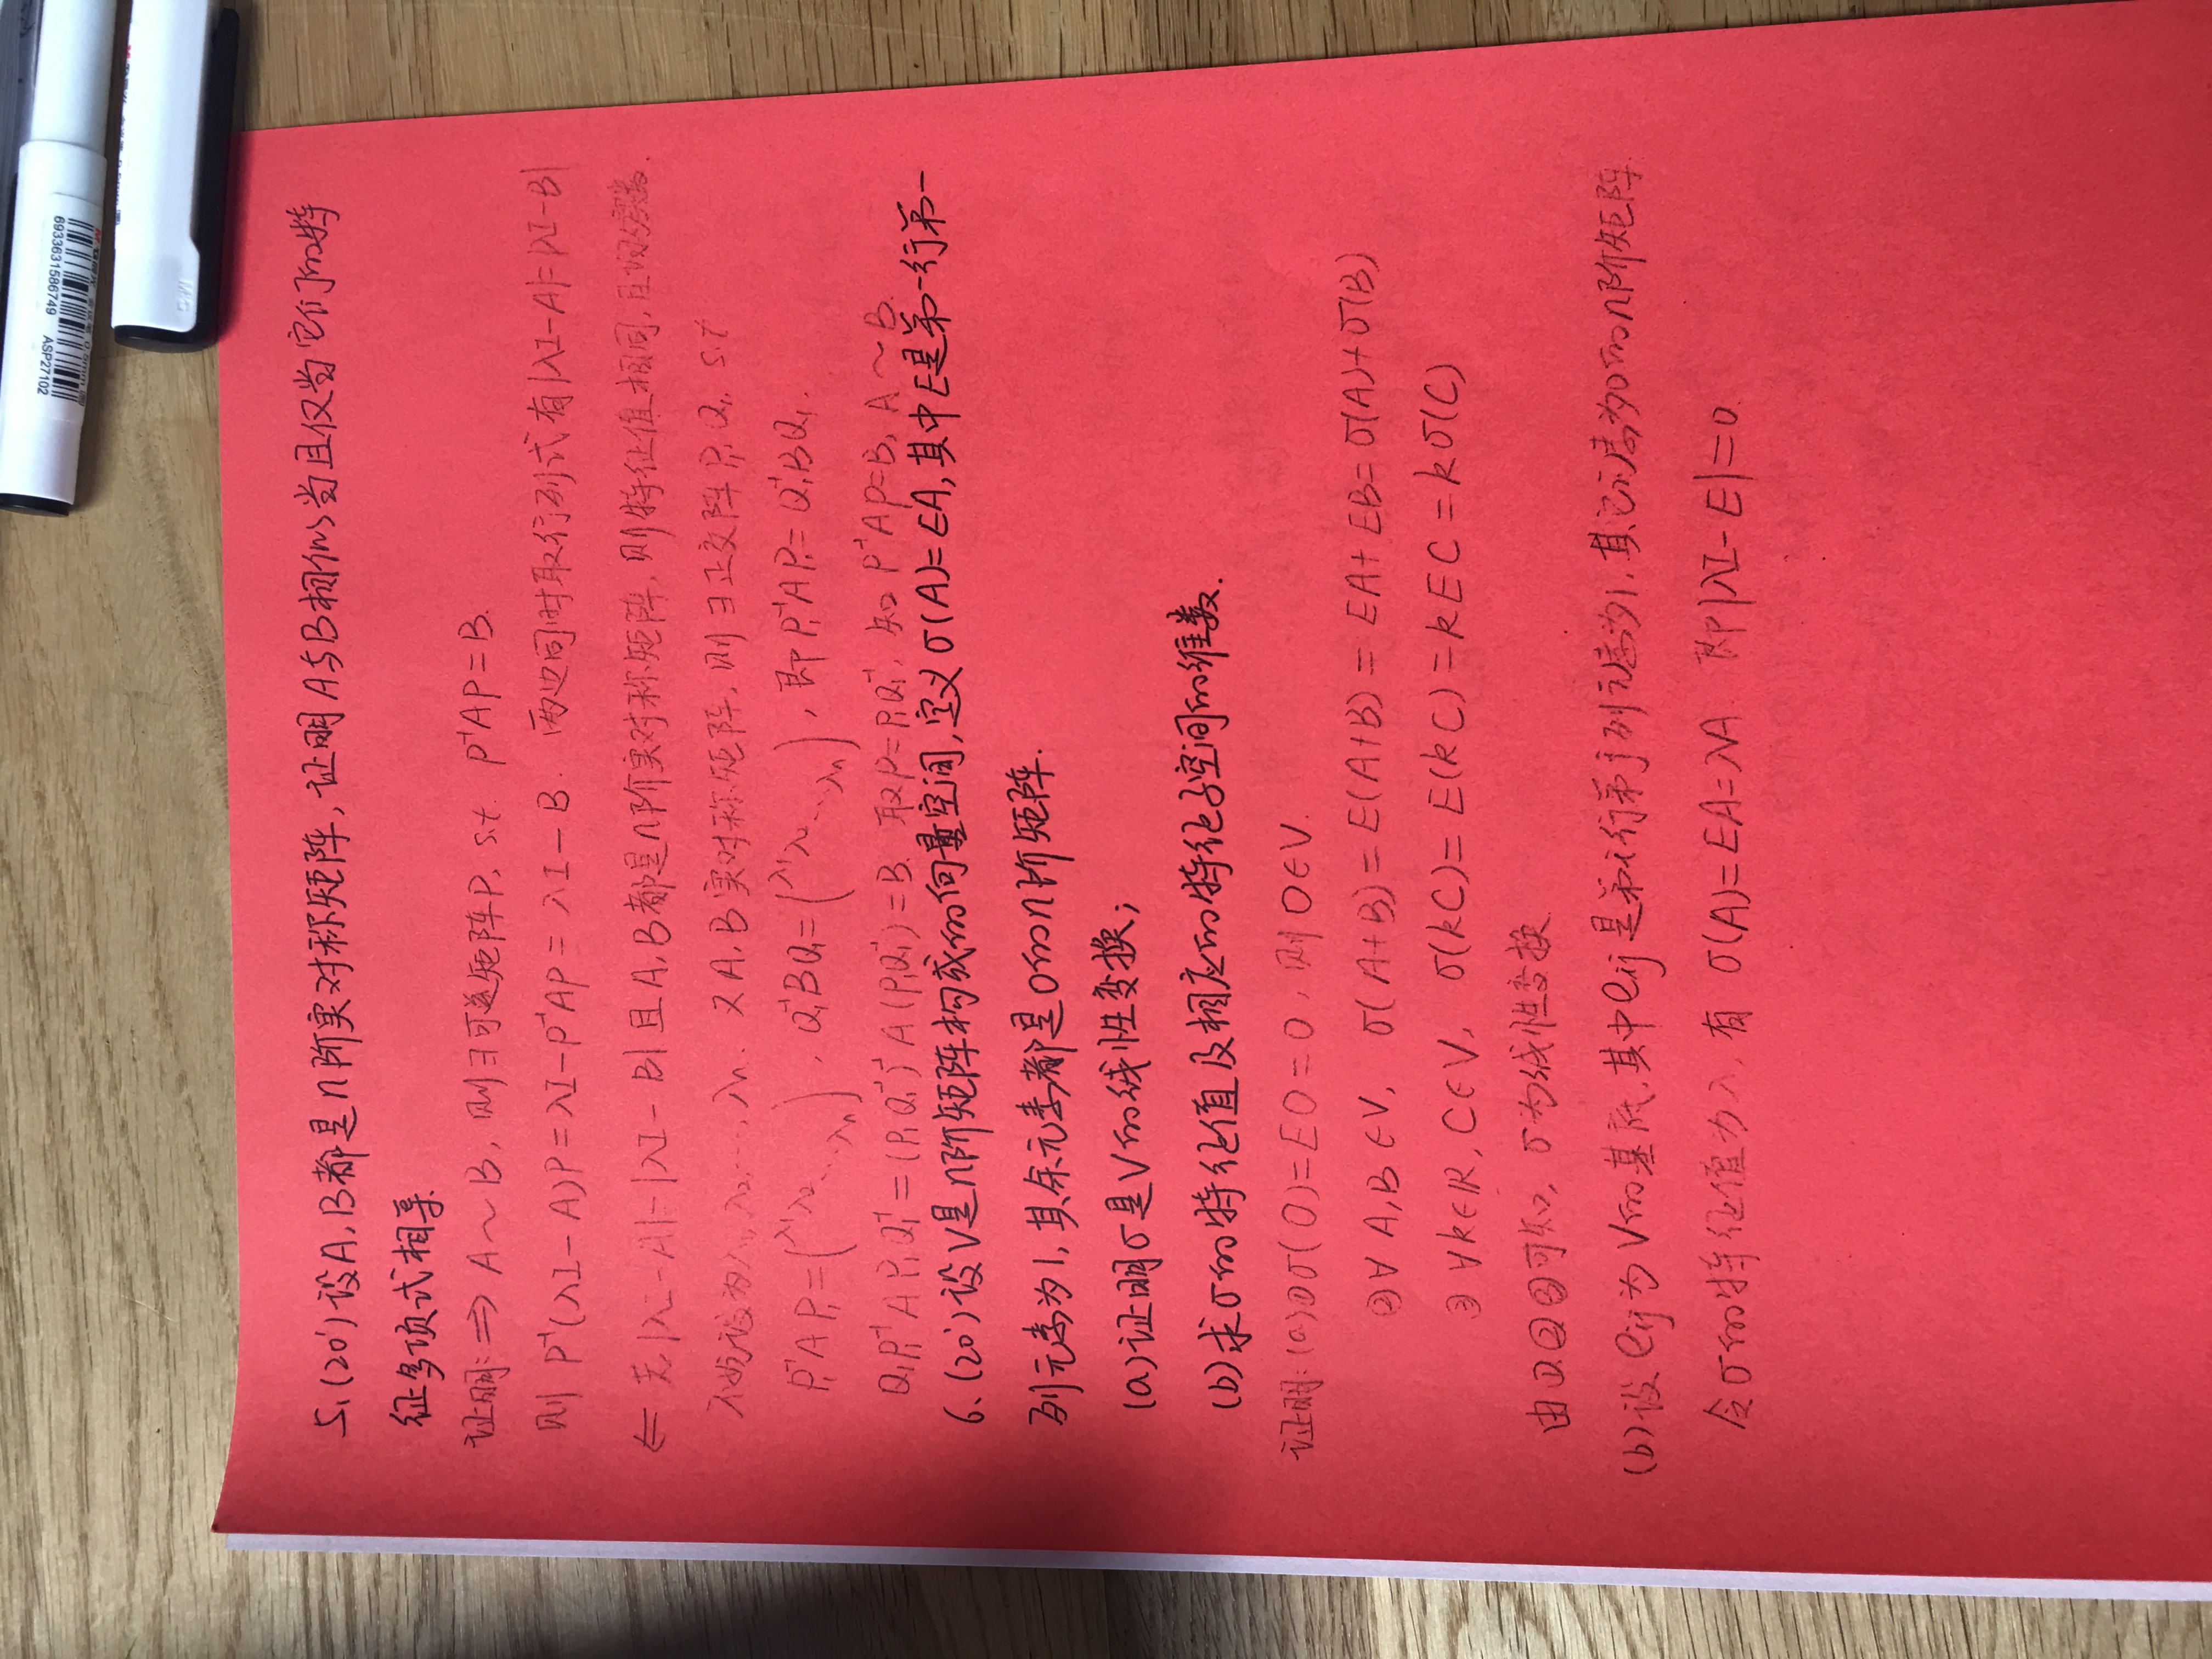 5、(20')设A,B都是n阶实对称矩阵,证明A与B相似当且仅当它们的特
征多项式相等
证明:⇒ A~B,则∃可逆矩阵P, s.t. P⁻¹AP=B.
则 P⁻¹(λI-A)P=λI-P⁻¹AP=λI-B. 两边同时取行列式有|λI-A|=|λI-B|
⇐ 若|λI-A|=|λI-B|且A,B都是n阶实对称矩阵,则特征值相同,且为实数.
不妨设为λ₁,λ₂,…,λn. 又A,B实对称矩阵,则∃正交阵P₁,Q₁, s.t
P₁⁻¹AP₁=(λ₁ λ₂ ⋱ λn), Q₁⁻¹BQ₁=(λ₁ λ₂ ⋱ λn), 即P₁⁻¹AP₁=Q₁⁻¹BQ₁.
Q₁P₁⁻¹AP₁Q₁⁻¹=(P₁Q₁⁻¹)⁻¹A(P₁Q₁⁻¹)=B. 取P=P₁Q₁⁻¹, 知P⁻¹AP=B, A~B.
6、(20')设V是n阶矩阵构成的向量空间,定义σ(A)=EA,其中E是第一行第一
列元素为1,其余元素都是0的n阶矩阵.
(a)证明σ是V的线性变换;
(b)求σ的特征值及相应的特征子空间的维数.
证明:(a)①σ(0)=E0=0,则0∈V.
②∀A,B∈V, σ(A+B)=E(A+B)=EA+EB=σ(A)+σ(B)
③∀k∈R,C∈V, σ(kC)=E(kC)=kEC=kσ(C)
由①②③可知,σ为线性变换.
(b)设eij为V的基底,其中eij是第i行第j列元素为1,其余元素为0的n阶矩阵.
令σ的特征值为λ,有 σ(A)=EA=λA. 即|λI-E|=0.
6933631586749 ASP27102
0.5mm
M&G